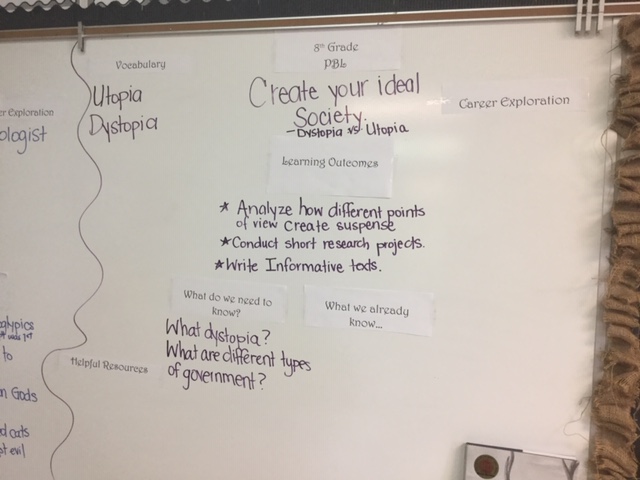 Vocabulary
Utopia
Dystopia
8th Grade
PBL
Create your ideal
Society.
- Dystopia vs. Utopia
Career Exploration
Learning Outcomes
★ Analyze how different points
of view create suspense
★ Conduct short research projects.
★ Write Informative texts.
What do we need to
know?
What dystopia?
What are different types
of government?
What we already
know...
Helpful Resources
er Exploration
ologist
alypics
to
n Gods
d cats
ot evil